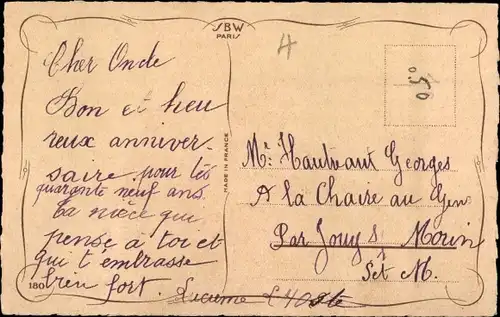 SBW
PARIS
4
0.50
Cher Oncle
Bon et heu
reux anniver-
saire pour tes
quarante neuf ans.
ta nièce qui
pense à toi et
qui t'embrasse
bien fort.
MADE IN FRANCE
Mr. Hautvant Georges
A la Chaire au Gens
Par Jouy s/ Morin
Set M.
180
Lucienne